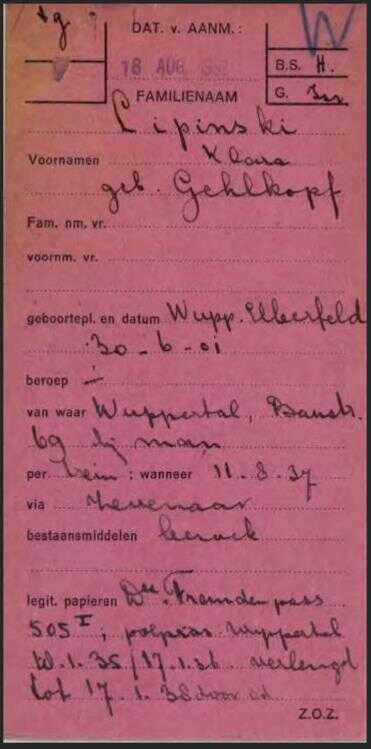 tg
DAT. v. AANM.:
W
18 AUG. 1937
B.S. H.
FAMILIENAAM
G.
Lipinski
Voornamen Klara
geb. Gehlkopf
Fam. nm. vr.
voornm. vr.
geboortepl. en datum Wupp. Elberfeld
30-6-01
beroep -
van waar Wuppertal, Baustr.
69 bij man
per trein; wanneer 11-8-37
via Zevenaar
bestaansmiddelen bezoek
legit. papieren Du. Fremdenpass
505 I; polpräs. Wuppertal
17.1.36 verlengd
tot 17.1.38 door id
Z.O.Z.